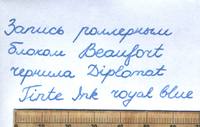 Запись роллерным
блоком Beaufort
чернила Diplomat
Tinte Ink royal blue